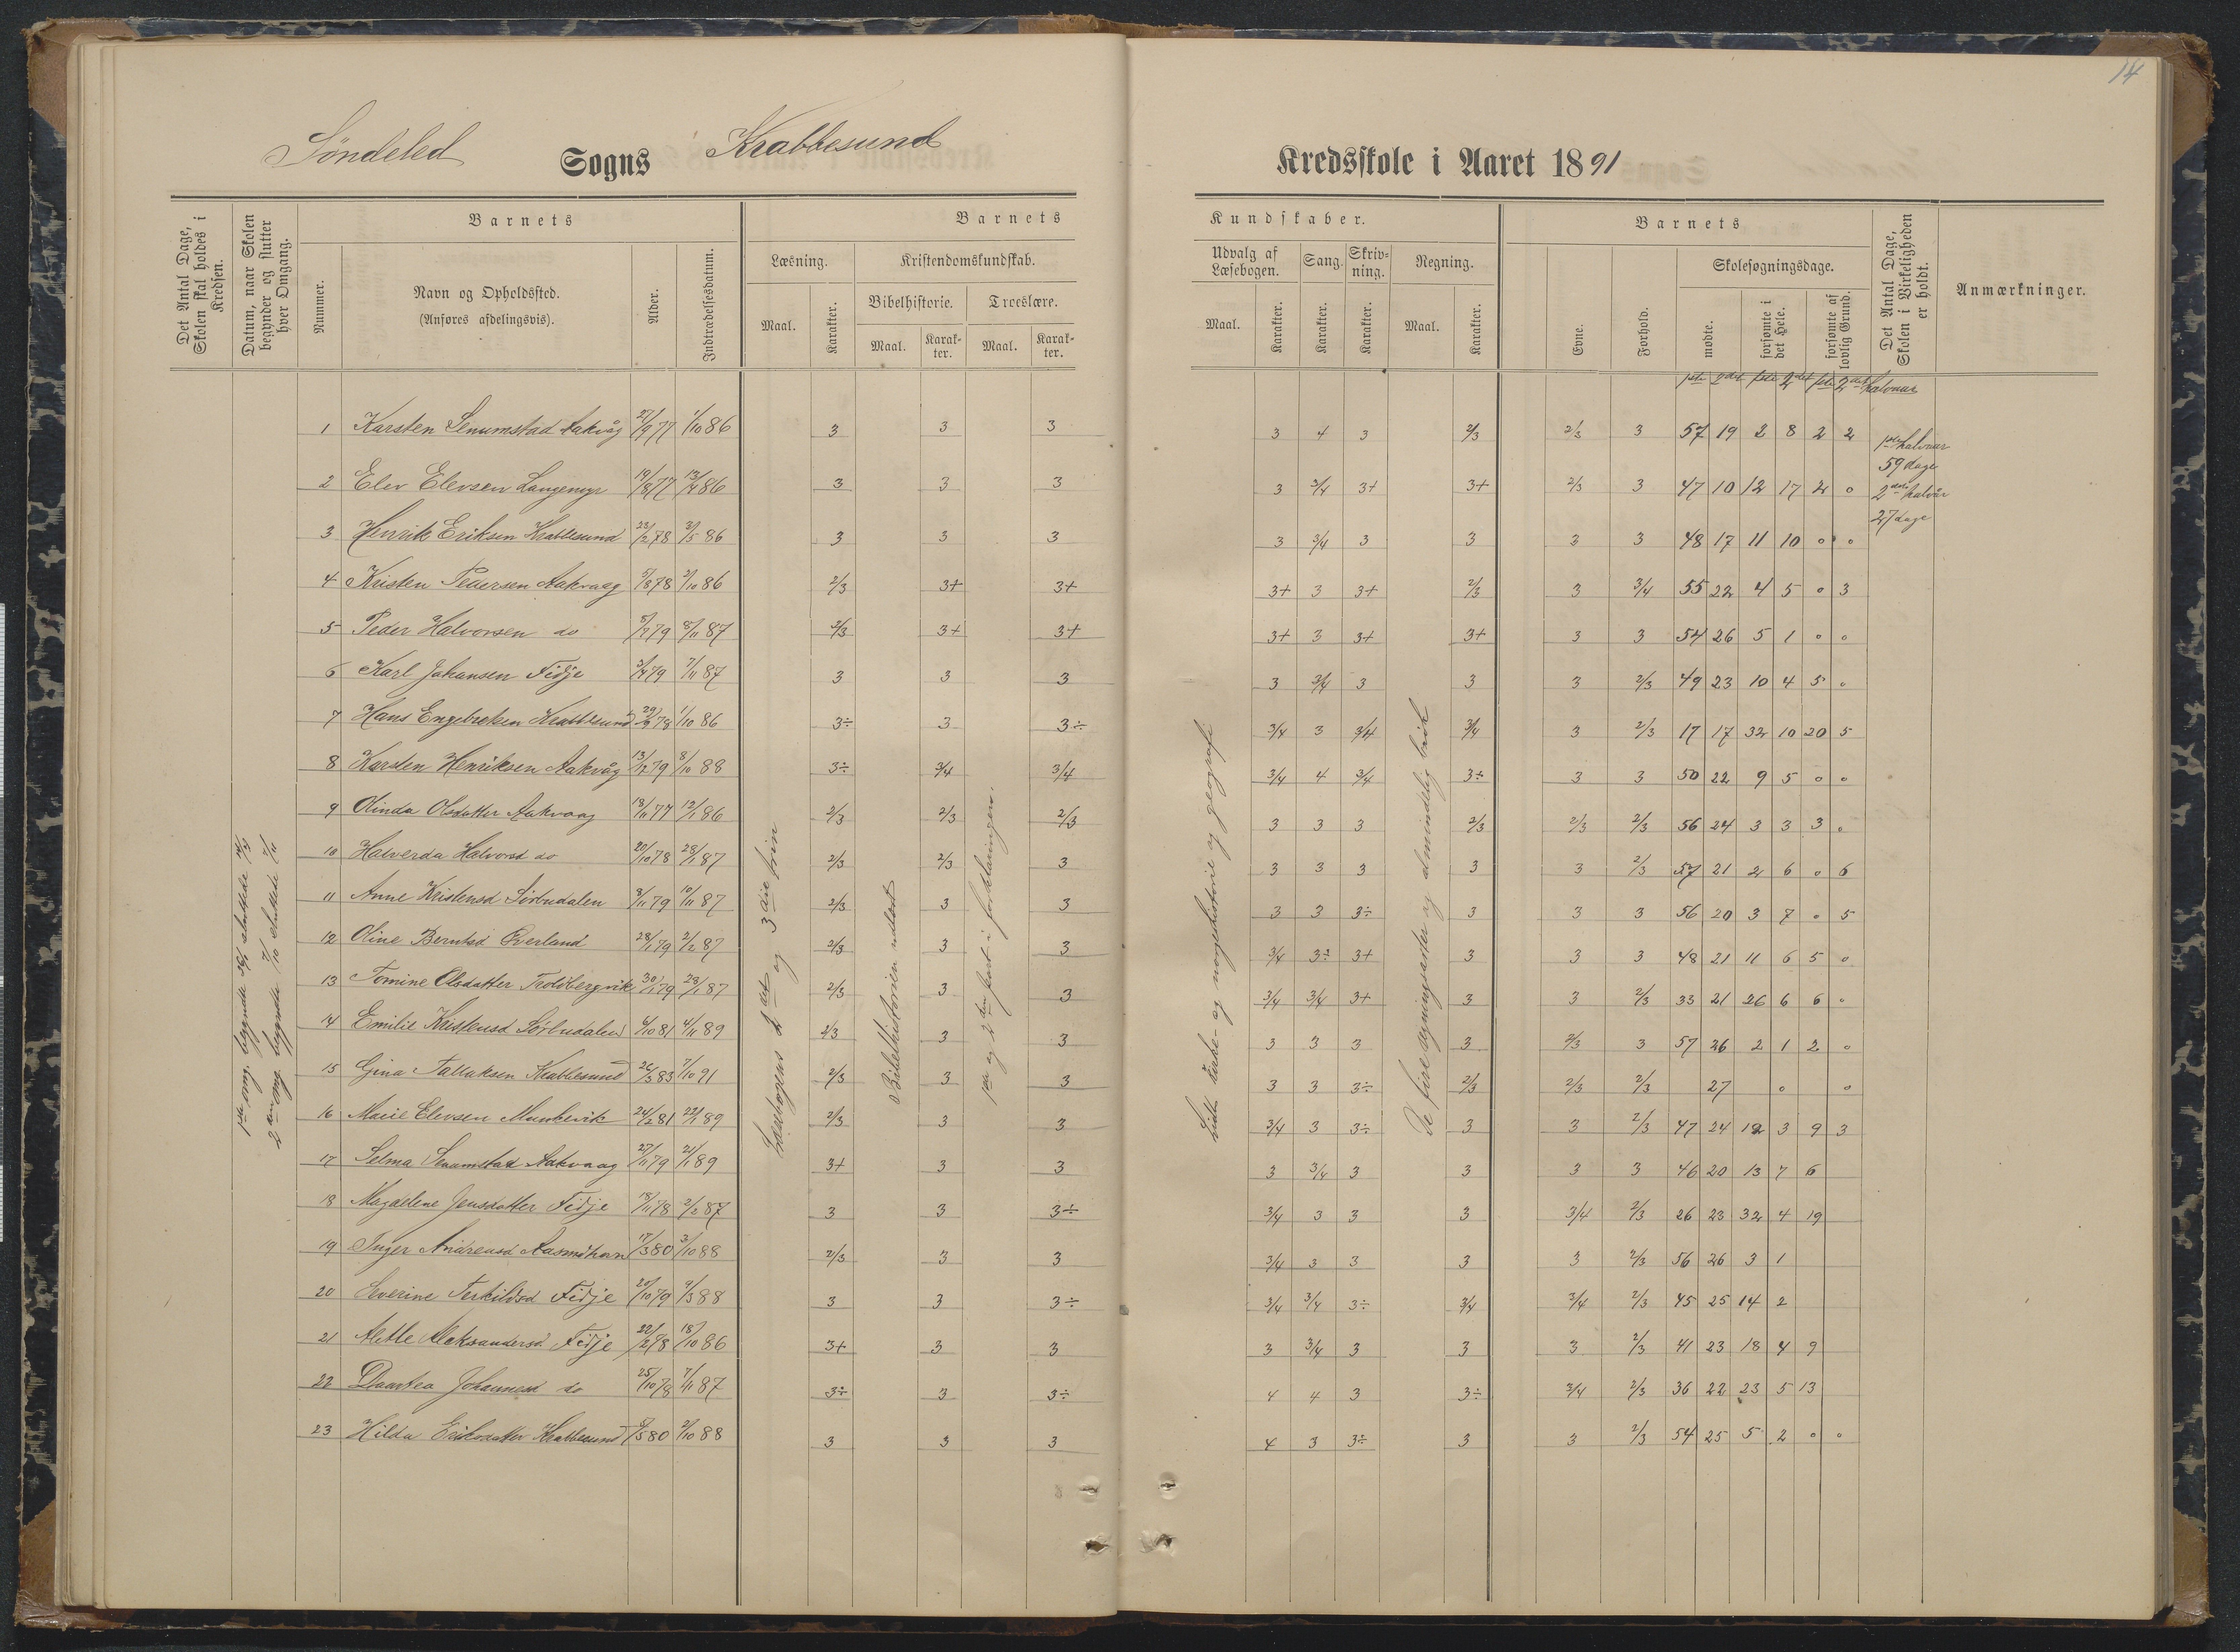 14
Søndeled Sogns Krabbesund Kredsskole i Aaret 1891
Det Antal Dage, Skolen skal holdes i Kredsen.
Datum, naar Skolen begynder og slutter hver Omgang.
Barnets
Nummer.
Navn og Opholdssted.
(Anføres afdelingsvis).
Alder.
Indtrædelsesdatum.
Barnets Kundskaber.
Læsning.
Maal.
Karakter.
Kristendomskundskab.
Bibelhistorie.
Maal.
Karakter.
Troeslære.
Maal.
Karakter.
Udvalg af Læsebogen.
Maal.
Karakter.
Sang.
Karakter.
Skrivning.
Karakter.
Regning.
Maal.
Karakter.
Barnets
Evne.
Forhold.
Skolesøgningsdage.
mødte.
forsømte i det Hele.
forsømte af lovlig Grund.
Det Antal Dage, Skolen i Virkeligheden er holdt.
Anmærkninger.
1ste 2det 1ste 2det 1ste 2det halvaar
1 Karsten Senumstad Aakvåg 27/9 77 1/10 86 3 3 3 3 4 3 2/3 2/3 3 57 19 2 8 2 2
2 Elev Elevsen Langemyr 19/8 77 13/4 86 3 3 3 3 3/4 3+ 3+ 2/3 3 47 10 12 17 2 0
3 Henrik Eriksen Krabbesund 23/2 78 3/5 86 3 3 3 3 3/4 3 3 3 3 48 17 11 10 0 0
4 Kristen Pedersen Aakvaag 5/8 78 2/10 86 2/3 3+ 3+ 3+ 3 3+ 2/3 3 3/4 55 22 4 5 0 3
5 Peder Halvorsen do 8/7 79 8/11 87 2/3 3+ 3+ 3+ 3 3+ 3+ 3 3 54 26 5 1 0 0
6 Karl Johansen Fidje 3/4 79 7/11 87 3 3 3 3 3/4 3 3 3 2/3 49 23 10 4 5 0
7 Hans Engebretsen Krabbesund 29/9 78 1/10 86 3÷ 3 3÷ 3/4 3 3/4 3/4 3 2/3 17 17 32 10 20 5
8 Karsten Henriksen Aakvåg 13/12 79 8/10 88 3÷ 3/4 3/4 3/4 4 3/4 3÷ 3 3 50 22 9 5 0 0
9 Olinda Olsdatter Aakvaag 18/11 77 12/1 86 2/3 2/3 2/3 3 3 3 2/3 2/3 2/3 56 24 3 3 3 0
10 Halverda Halvorsd do 20/10 78 28/1 87 2/3 2/3 3 3 3 3 3 3 2/3 57 21 2 6 0 6
11 Anne Kristensd Sørbudalen 8/11 79 10/11 87 2/3 3 3 3 3 3÷ 3 3 3 56 20 3 7 0 5
12 Oline Berntsd Øverland 28/1 79 2/2 87 2/3 3 3 3/4 3÷ 3+ 3 3 3 48 21 11 6 5 0
13 Tomine Olsdatter Troldbergvik 30/1 79 28/1 87 2/3 3 3 3/4 3/4 3+ 3 3 2/3 33 21 26 6 6 0
14 Emilie Kristensd Sørbudalen 6/10 81 4/11 89 2/3 3 3 3 3 3 3 2/3 3 57 26 2 1 2 0
15 Gina Tallaksen Krabbesund 26/3 83 7/10 91 2/3 3 3 3 3 3÷ 2/3 2/3 2/3 27 0 0
16 Marie Elevsen 24/2 81 22/1 89 2/3 3 3 3/4 3 3÷ 3 3 2/3 47 24 12 3 9 3
17 Selma Senumstad Aakvaag 27/11 79 21/1 89 3+ 3 3 3 3/4 3 3 3 3 46 20 13 7 6
18 Magdelene Jensdatter Fidje 18/11 78 2/2 87 3 3 3÷ 3/4 3 3 3 3/4 2/3 26 23 32 4 19
19 Inger Andreasd 17/3 80 3/10 88 2/3 3 3 3/4 3 3 3 3 2/3 56 26 3 1
20 Severine Terkildsd Fidje 20/10 79 9/3 88 3 3 3÷ 3/4 3/4 3÷ 3/4 3/4 2/3 45 25 14 2
21 Aleksandersd. Fidje 22/2 78 18/10 86 3+ 3 3 3 3/4 3 3 3 2/3 41 23 18 4 9
22 Daartea Johannesd do 25/10 78 7/11 87 3÷ 3 3÷ 4 4 3 3÷ 3/4 2/3 36 22 23 5 13
23 Hilda Eriksdatter Krabbesund 8/5 80 2/10 88 3 3 3 4 3 3÷ 3 3 2/3 54 25 5 2 0 0
1ste omg. begyndte 26/1 sluttede 14/4
2den omg. begyndte 7/10 sluttede 7/11
Læsebogens 2det og 3die trin
Bibelhistorien udlæst
1ste og 2den part i forklaringen.
kirke- og norgeshistorie og geografi
De fire regningsarter og almindelig brøk
1ste halvaar
59 dage
2det halvår
27 dage